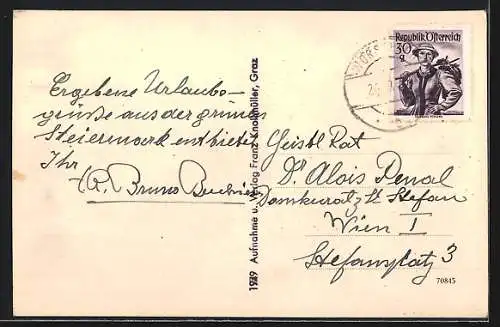 Ergebene Urlaubs-
grüße aus der grünen
Steiermark entbietet
Ihr
Bruno
1949 Aufnahme u. Verlag Franz Knollmüller, Graz
Republik Österreich
30
g
Geistl Rat
Dr Alois Penal
Domkurat z. St. Stefan
Wien I
Stefansplatz 3
70845